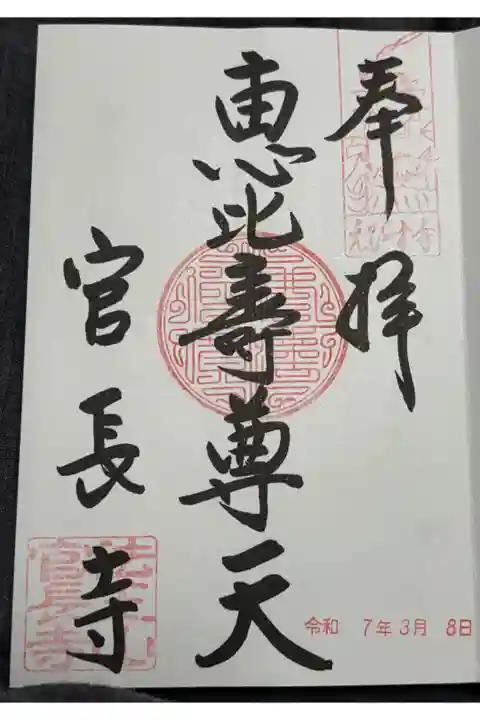 奉拝
恵比寿尊天
官長寺
令和 7年 3月 8日